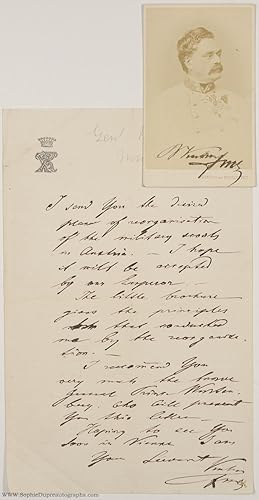 Gen
I send You the
plan of reorganisation
of the military
in Austria. – I hope
it will be accepted
by our Emperor –
The little brochure
gives the principles
that conducted
me by the reorganisa-
tion. –
I recommend You
very much the
General Prince
who will present
You this letter –
Hoping to see You
soon in Vienne I am
Your Servant
www.SophieDupreAutographs.com